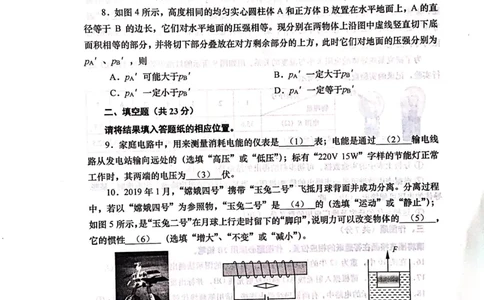 8．如图 4 所示，高度相同的均匀实心圆柱体 A 和正方体 B 放置在水平地面上，A 的直
径等于 B 的边长，它们对水平地面的压强相等。现分别在两物体上沿图中虚线竖直切下底
面积相等的部分，并将切下部分叠放在对方剩余部分的上方，此时它们对地面的压强分别为
pA′、pB′，则
A．pA′可能大于pB′ B．pA′一定大于pB′
C．pA′一定小于pB′ D．pA′一定等于pB′
二、填空题（共 23 分）
请将结果填入答题纸的相应位置。
9．家庭电路中，用来测量消耗电能的仪表是 （1） 表；电能是通过 （2） 输电线
路从发电站输向远处的（选填“高压”或“低压”）；标有“220V 15W”字样的节能灯正常
工作时，其两端的电压为 （3） 伏。
10．2019 年 1 月，“嫦娥四号”携带“玉兔二号”飞抵月球背面并成功分离。分离过程
中，若以“嫦娥四号”为参照物，“玉兔二号”是 （4） 的（选填“运动”或“静止”）；
如图 5 所示，是“玉兔二号”在月球上行走时留下的“脚印”，说明力可以改变物体的 （5） ，
它的惯性 （6） （选填“增大”、“不变”或“减小”）。
F